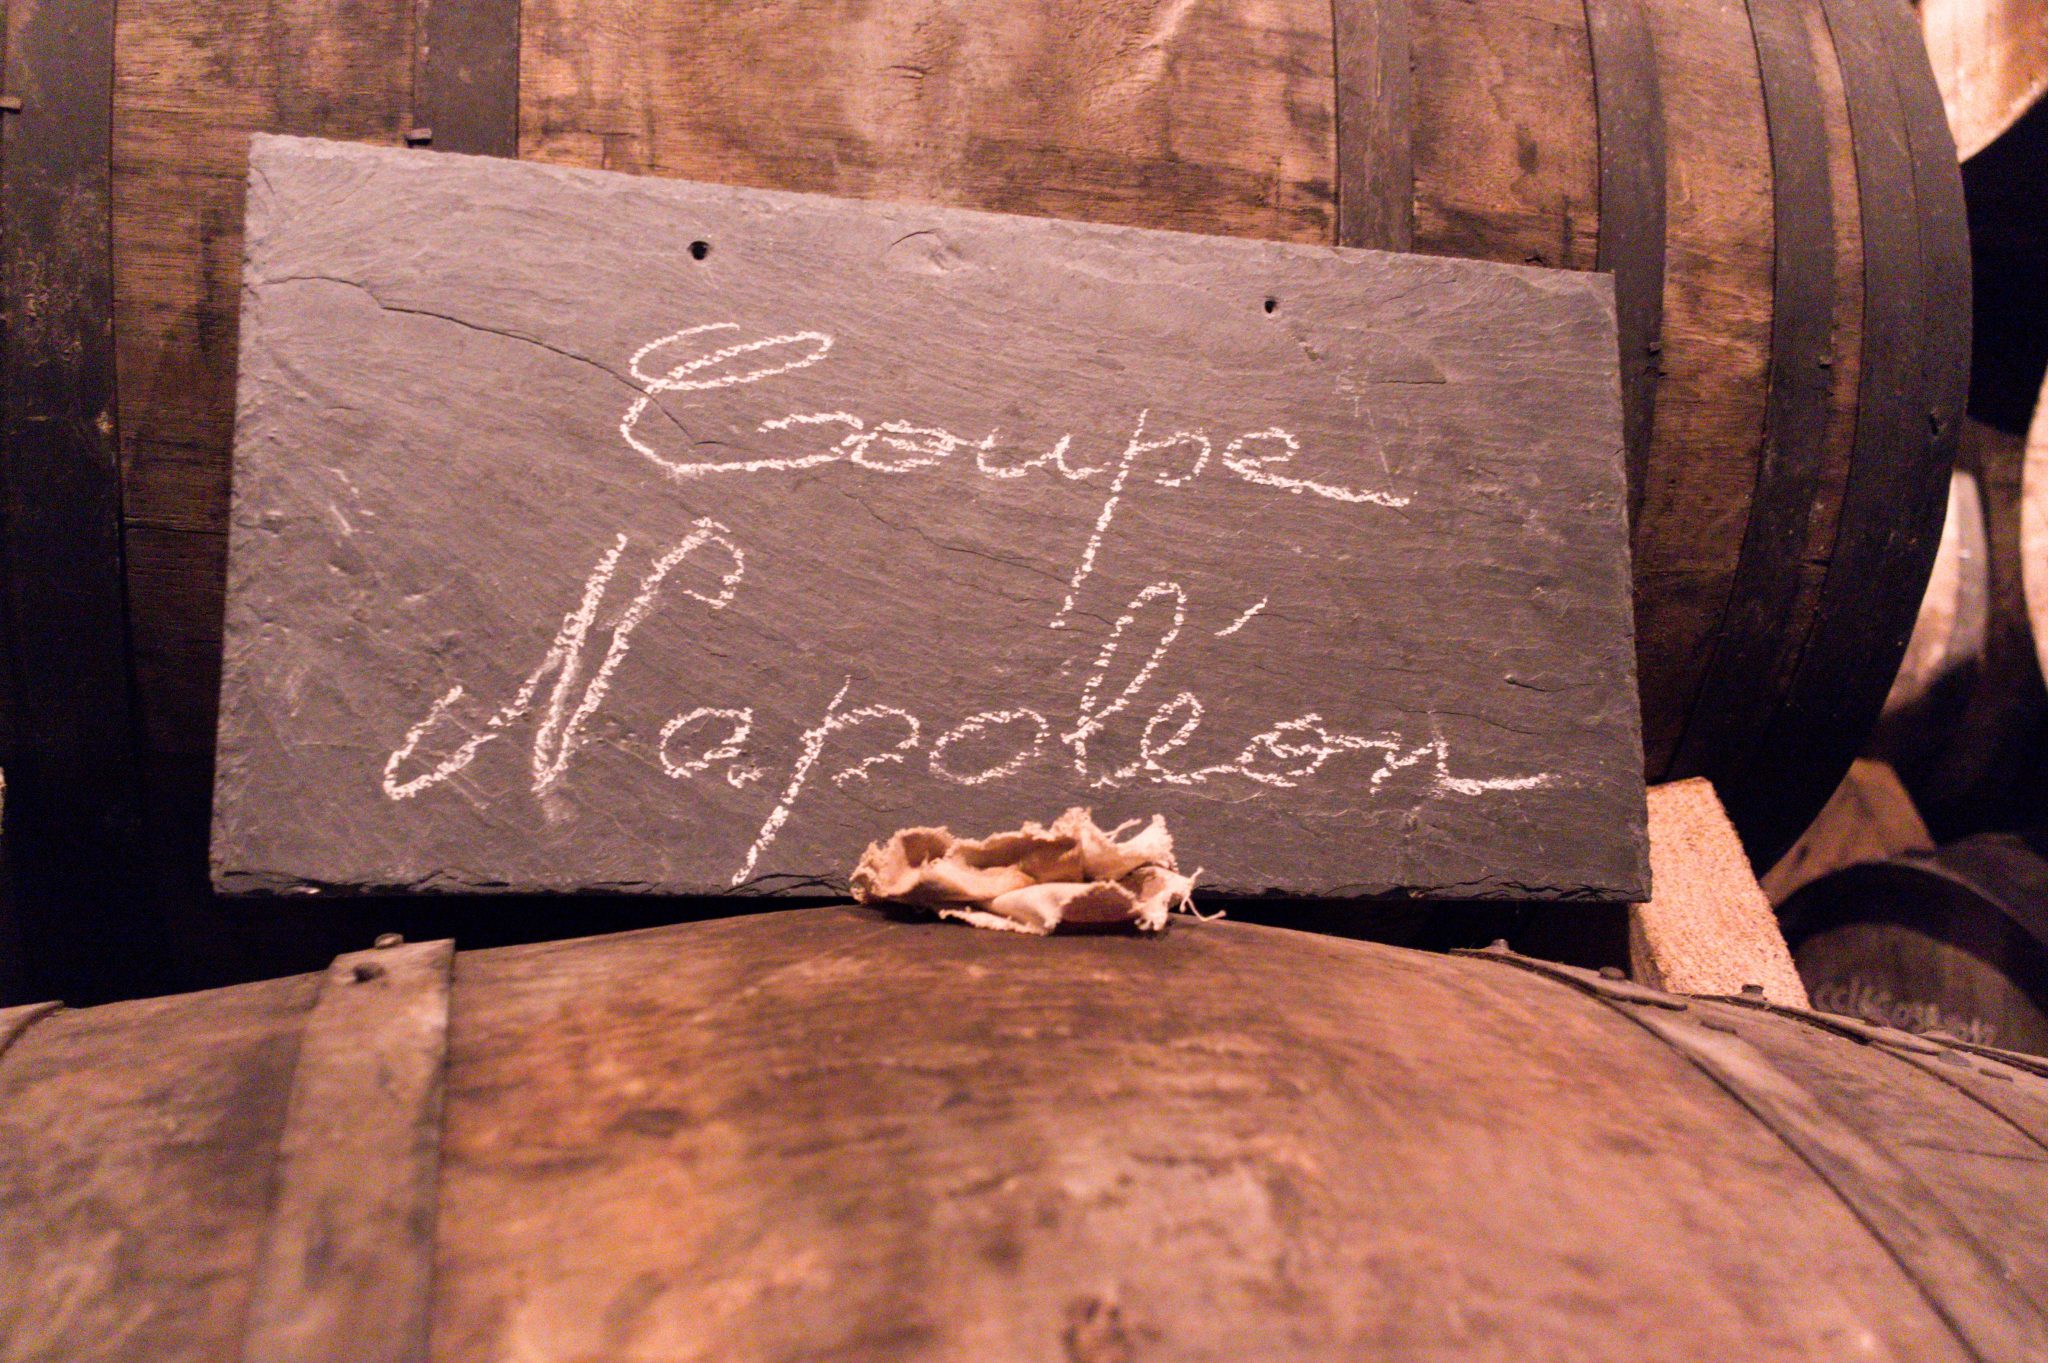 Coupe
Napoléon